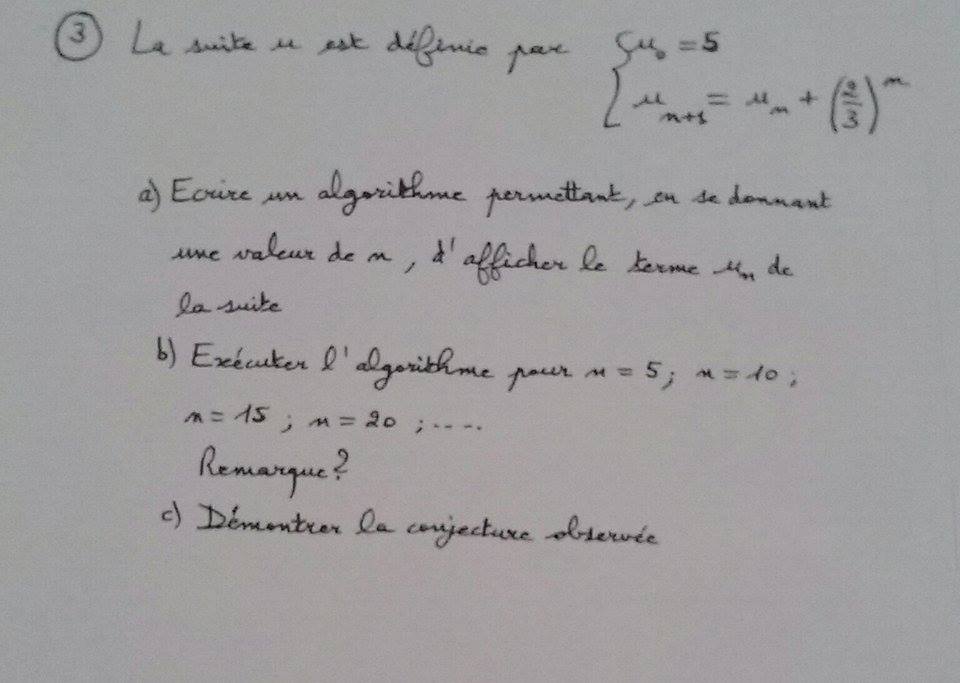 ③ La suite u est définie par { u₀ = 5
{ uₙ₊₁ = uₙ + (2/3)ⁿ
a) Ecrire un algorithme permettant, en se donnant
une valeur de n, d'afficher le terme uₙ de
la suite
b) Exécuter l'algorithme pour n = 5 ; n = 10 ;
n = 15 ; n = 20 ; ....
Remarque ?
c) Démontrer la conjecture observée